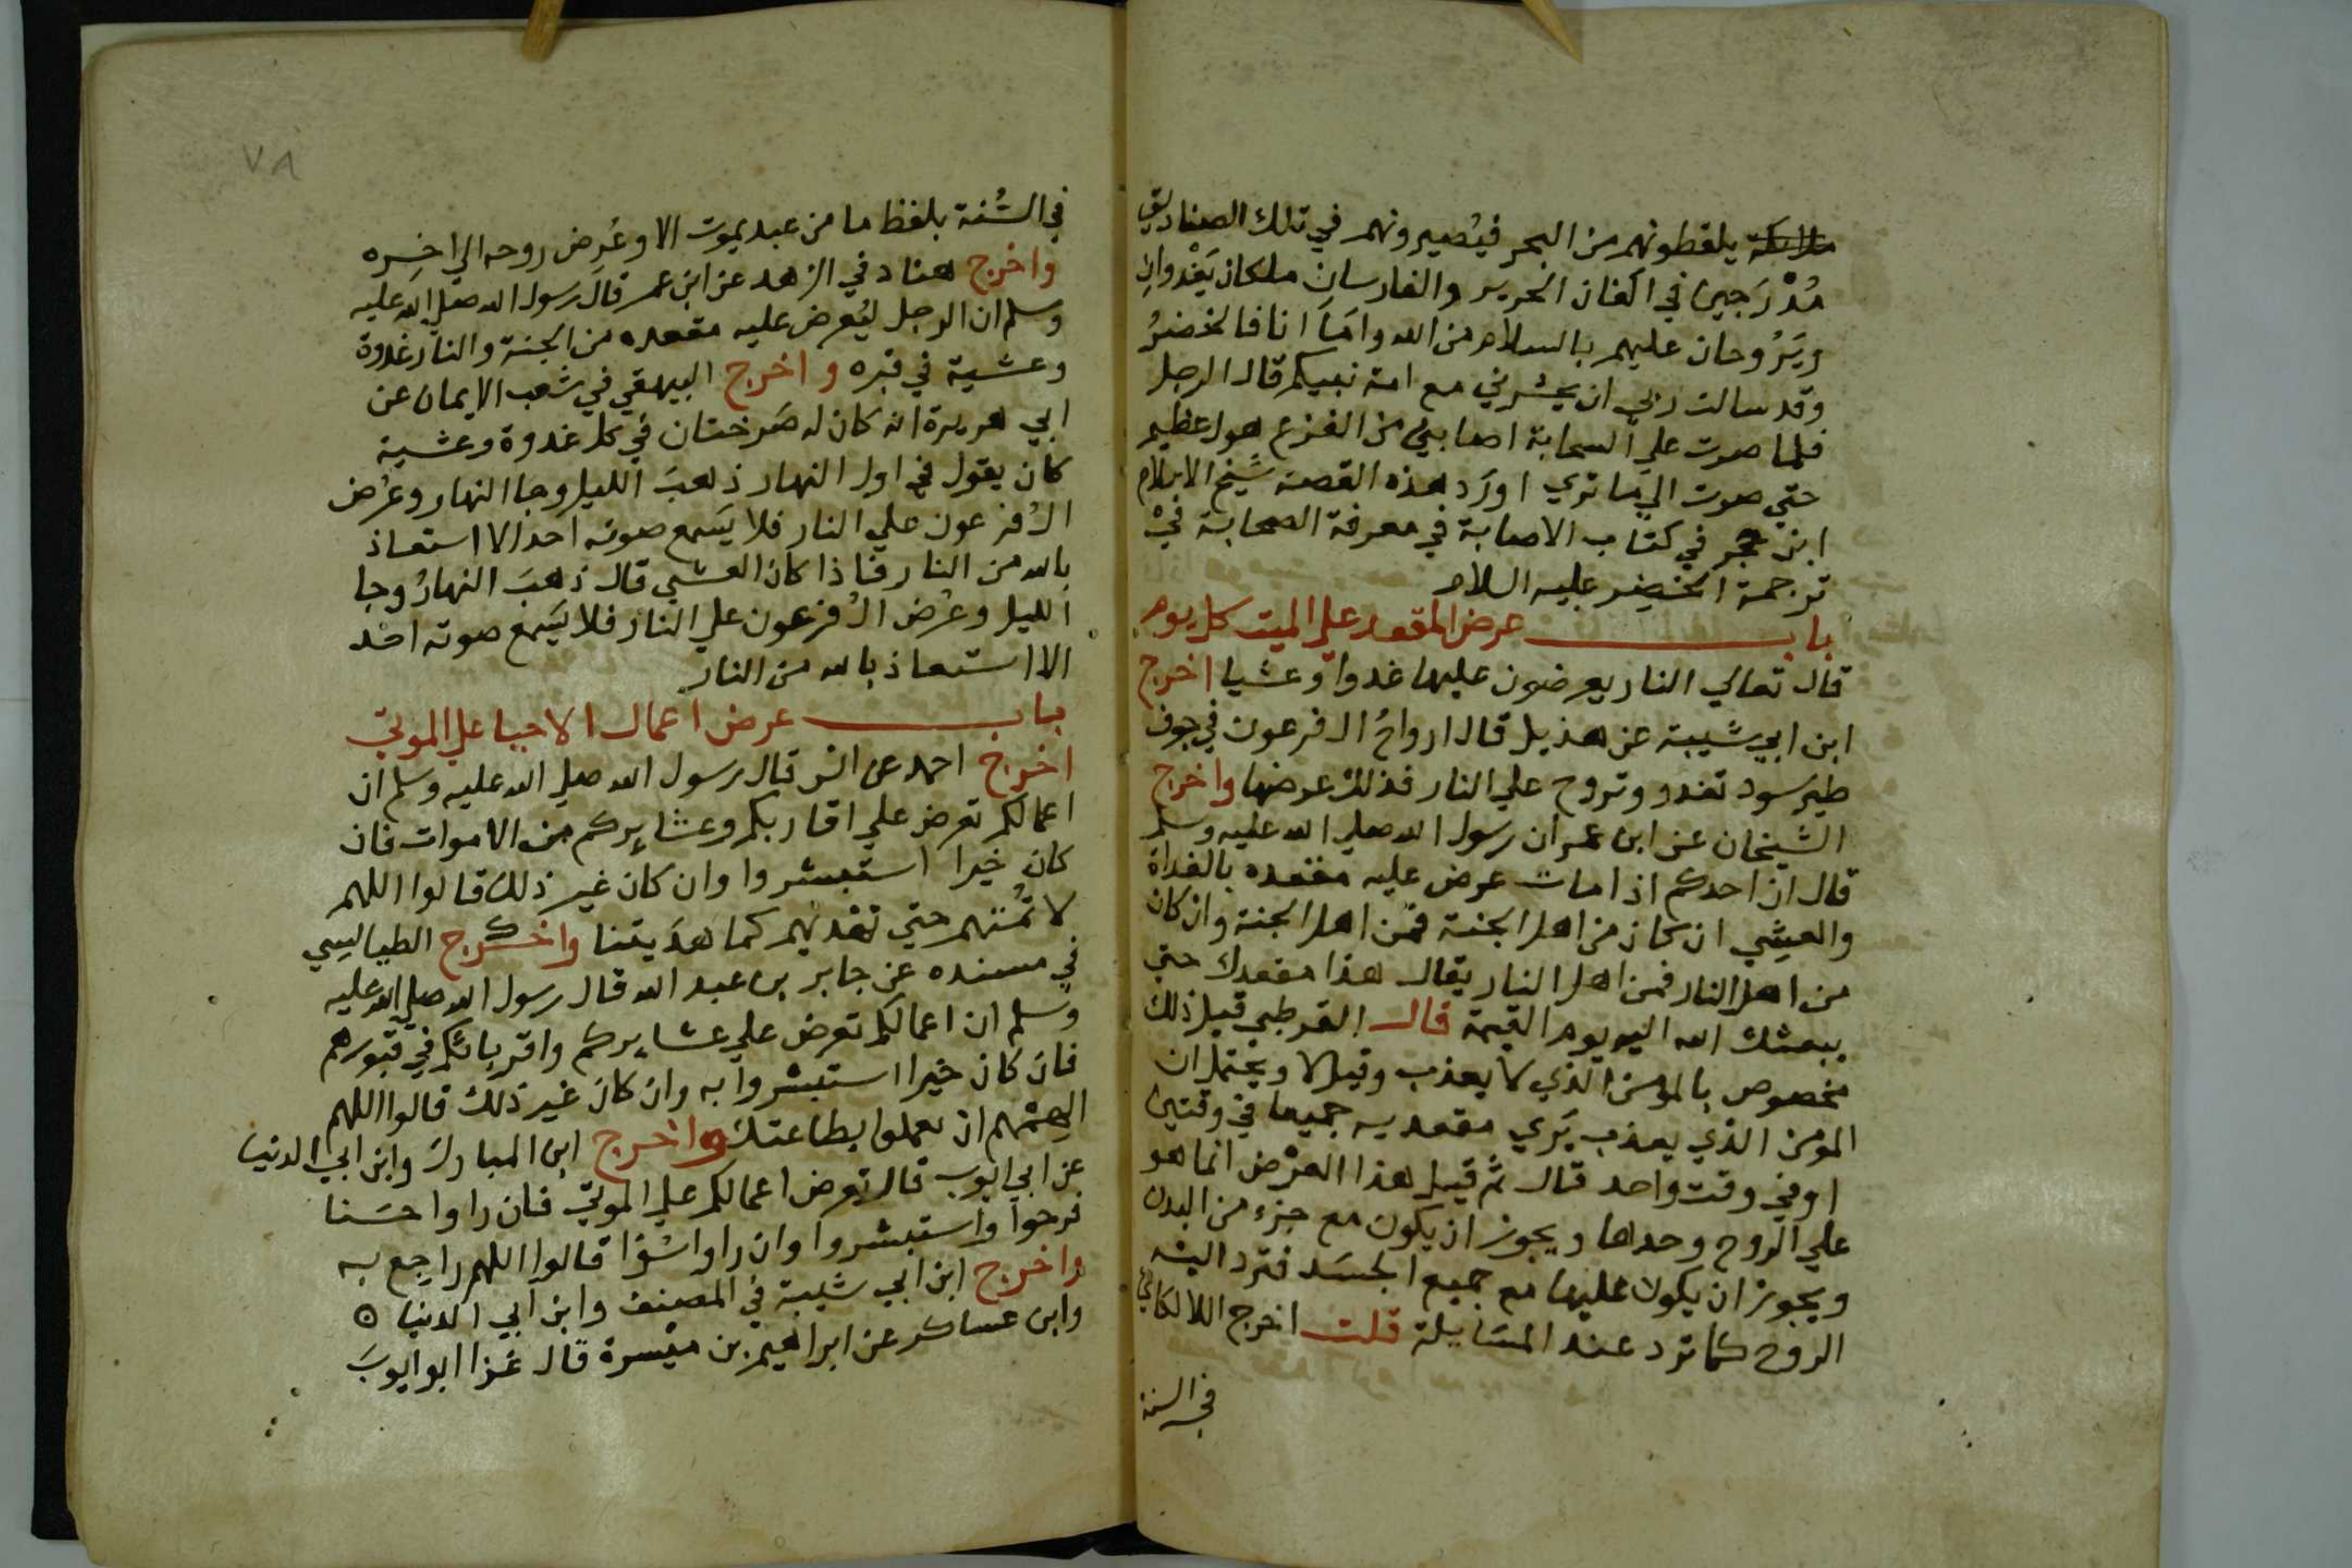 ملايكة يلقطونهم من البحر فيُصيرونهم في تلك الصناديق
مُدْرَجين في اكفان الحرير والفارسان ملكان يَغْدوانِ
ويَرُوحان عليهم بالسلام من الله وامَّا انا فالخضرُ
وقد سالت ربي ان يحشرني مع امة نبيكم قال الرجل
فلما صرت علي السحابة اصابني من الفزع هول عظيم
حتي صرت الي ما تري اورَد هذه القصة شيخ الاسلام
ابن حجر في كتاب الاصابة في معرفة الصحابة في
ترجمة الخضِر عليه السلام
باب عرض المقعد علي الميت كل يوم
قال تعالي النار يعرضون عليها غدوا وعشيا اخرج
ابن ابي شيبة عن هذيل قال ارواحُ ال فرعون في جوف
طير سود تغدو وتروح علي النار فذلك عرضها واخرج
الشيخان عن ابن عمر ان رسول الله صلي الله عليه وسلم
قال ان احدكم اذا مات عرض عليه مقعده بالغداة
والعشِي ان كان من اهل الجنة فمن اهل الجنة وان كان
من اهل النار فمن اهل النار يقال هذا مقعدك حتي
يبعثك الله اليه يوم القيمة قال القرطبي قيل ذلك
مخصوص بالمؤمن الذي لا يعذب وقيل لا ويحتمل ان
المومن الذي يعذب يَري مقعديه جميعا في وقتين
او في وقت واحد قال ثم قيل هذا العرْض انما هو
علي الروح وحدها ويجوز ان يكون مع جزء من البدن
ويجوز ان يكون عليها مع جميع الجسَد فترد اليه
الروح كما ترد عند المسَايلة قلت اخرج اللالكائي
في السنة
٧٨
في السُّنة بلفظ ما من عبد يموت الا وعُرض روحه الي اخِره
واخرج هناد في الزهد عن ابن عمر قال رسول الله صلي الله عليه
وسلم ان الرجل ليُعرض عليه مقعده من الجنة والنار غدوة
وعشية في قبره واخرج البيهقي في شعب الايمان عن
ابي هريرة انه كان له صَرختان في كل غدوة وعشية
كان يقول في اول النهار ذهبَ الليل وجا النهار وعُرض
ال فرعون علي النار فلا يَسمع صوته احد الا استعاذ
بالله من النار فاذا كان العشي قال ذهبَ النهارُ وجا
الليل وعُرض ال فرعون علي النار فلا يَسمع صوته احد
الا استعاذ بالله من النار
باب عرض اعمال الاحيا علي الموتي
اخرج احمد عن انس قال رسول الله صلي الله عليه وسلم ان
اعمالكم تعرض علي اقاربكم وعشايركم من الاموات فان
كان خيرا استبشروا وان كان غير ذلك قالوا اللهم
لا تُمتهم حتي تهديهم كما هدَيتنا واخرج الطيالسِي
في مسنده عن جابر بن عبد الله قال رسول الله صلي الله عليه
وسلم ان اعمالكم تعرض علي عشايركم واقربائكم في قبورهم
فان كان خيرا استبشروا به وان كان غير ذلك قالوا اللهم
الهمهم ان يعملوا بطاعتك واخرج ابن المبارك وابن ابي الدنيا
عن ابي ايوب قال تعرض اعمالكم علي الموتي فان راوا حسَنا
فرحوا واستبشروا وان راوا سُوْا قالوا اللهم راجِع به
واخرج ابن ابي شيبة في المصنف وابن ابي الدنيا
وابن عساكر عن ابراهيم بن ميْسرة قال غزا ابو ايوبَ